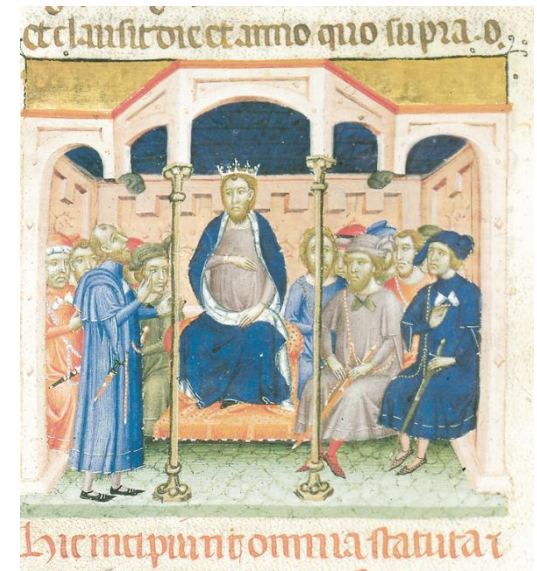 et clausit die et anno quo supra. 0.
Hic incipiunt omnia statuta et